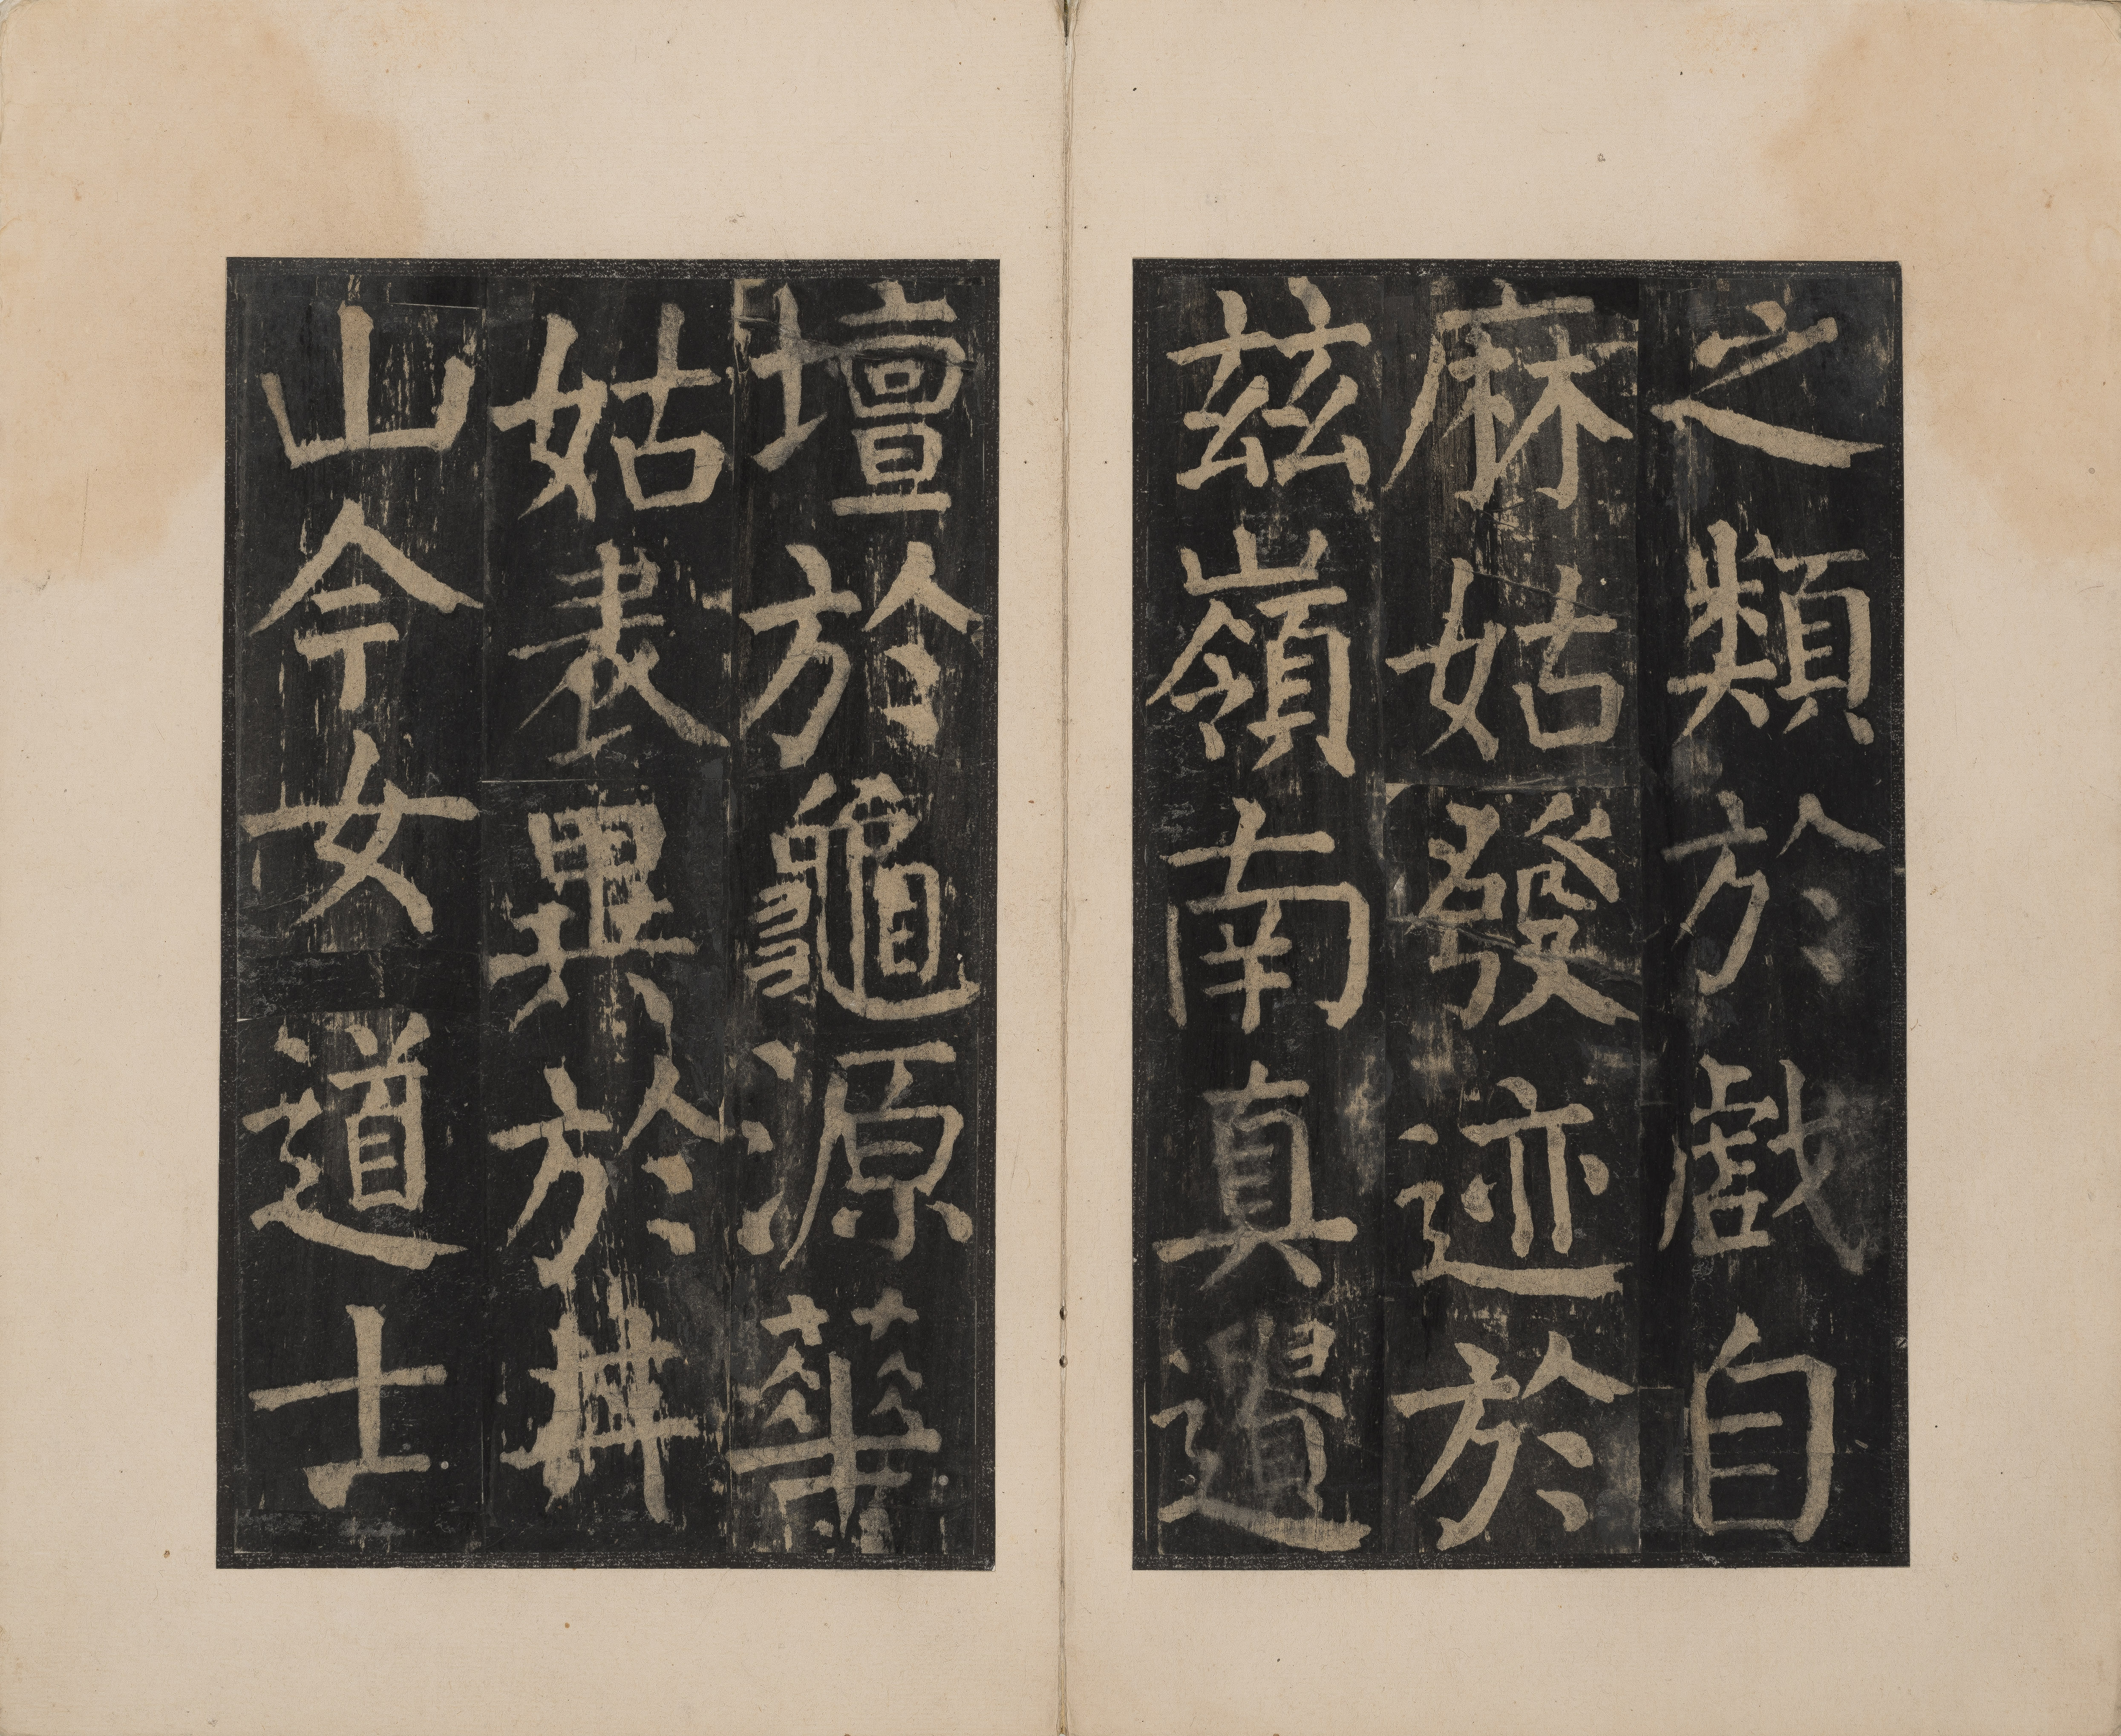 之類於戲自
麻姑發迹於
茲嶺南真遺
壇於龜源華
姑表異於井
山今女道士